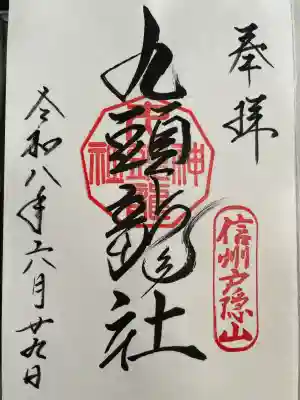 奉拝
信州戸隠山
九頭龍社
令和八年六月廿九日